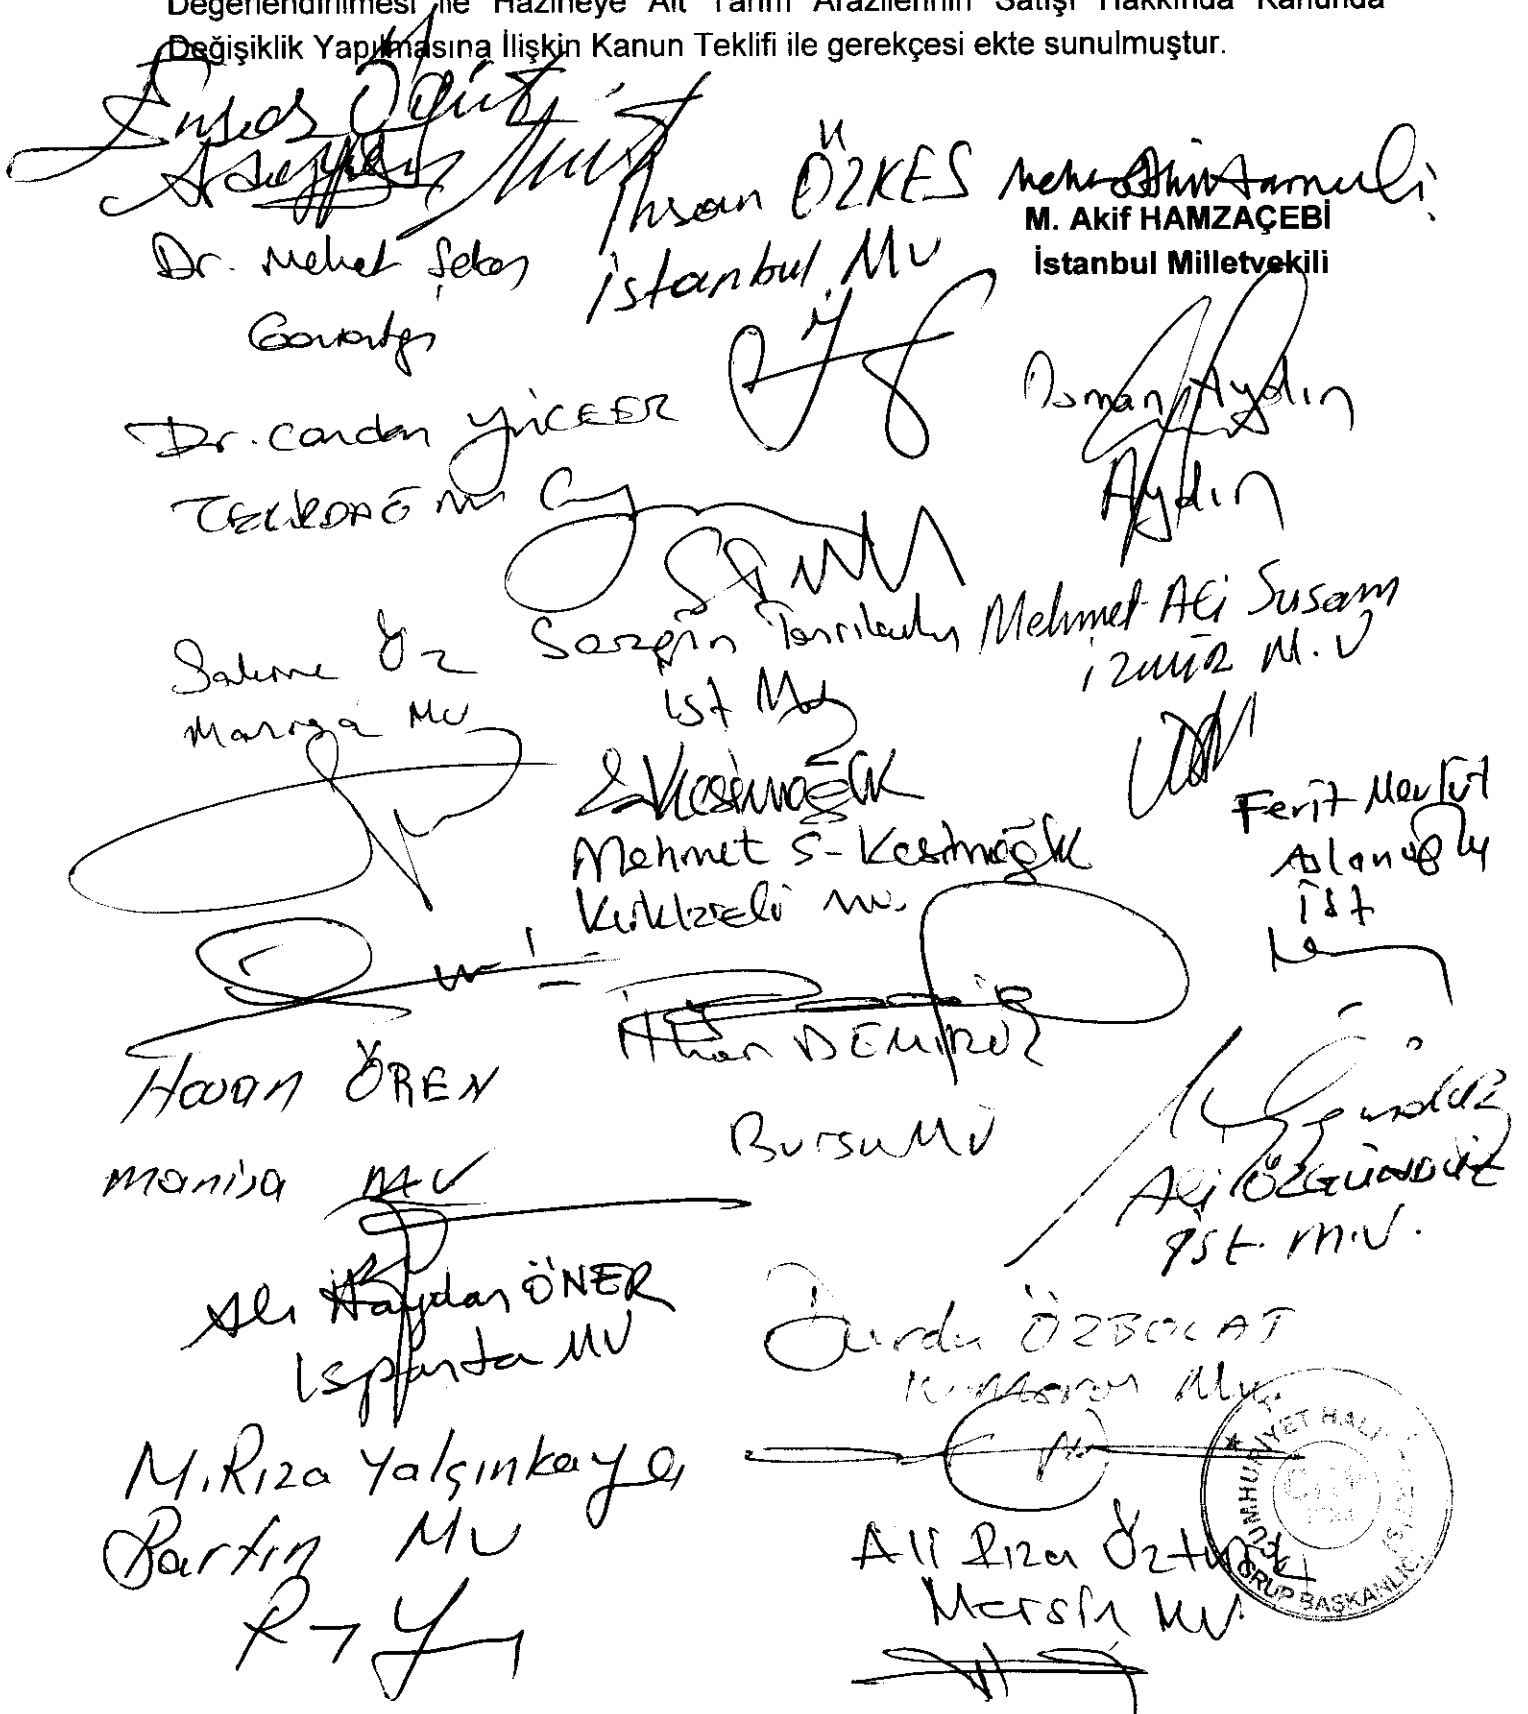 Değerlendirilmesi ile Hazineye Ait Tarım Arazilerinin Satışı Hakkında Kanunda
Değişiklik Yapılmasına İlişkin Kanun Teklifi ile gerekçesi ekte sunulmuştur.
Ensar Öğüt
İhsan ÖZKES
İstanbul MV
M. Akif HAMZAÇEBİ
İstanbul Milletvekili
Dr. Mehmet Şeker
Gaziantep
Dr. Candan YÜCEER
TEKİRDAĞ MV
Osman Aydın
Aydın
Sakine Öz
Manisa MV
Sezgin Tanrıkulu
İst Mv
Mehmet Ali Susam
İZMİR M.V
Mehmet S. Kesimoğlu
Kırklareli MV.
Ferit Mevlüt
Aslanoğlu
İst
Hasan ÖREN
Manisa MV
İlhan DEMİRÖZ
Bursa MV
Ali ÖZGÜNDÜZ
İst. M.V.
Ali Haydar ÖNER
Isparta MV
Durdu ÖZBOLAT
K. Maraş Mv.
M. Rıza Yalçınkaya
Bartın MV
Ali Rıza Öztürk
Mersin MV.
CUMHURİYET HALK
GRUP BAŞKANLIĞI